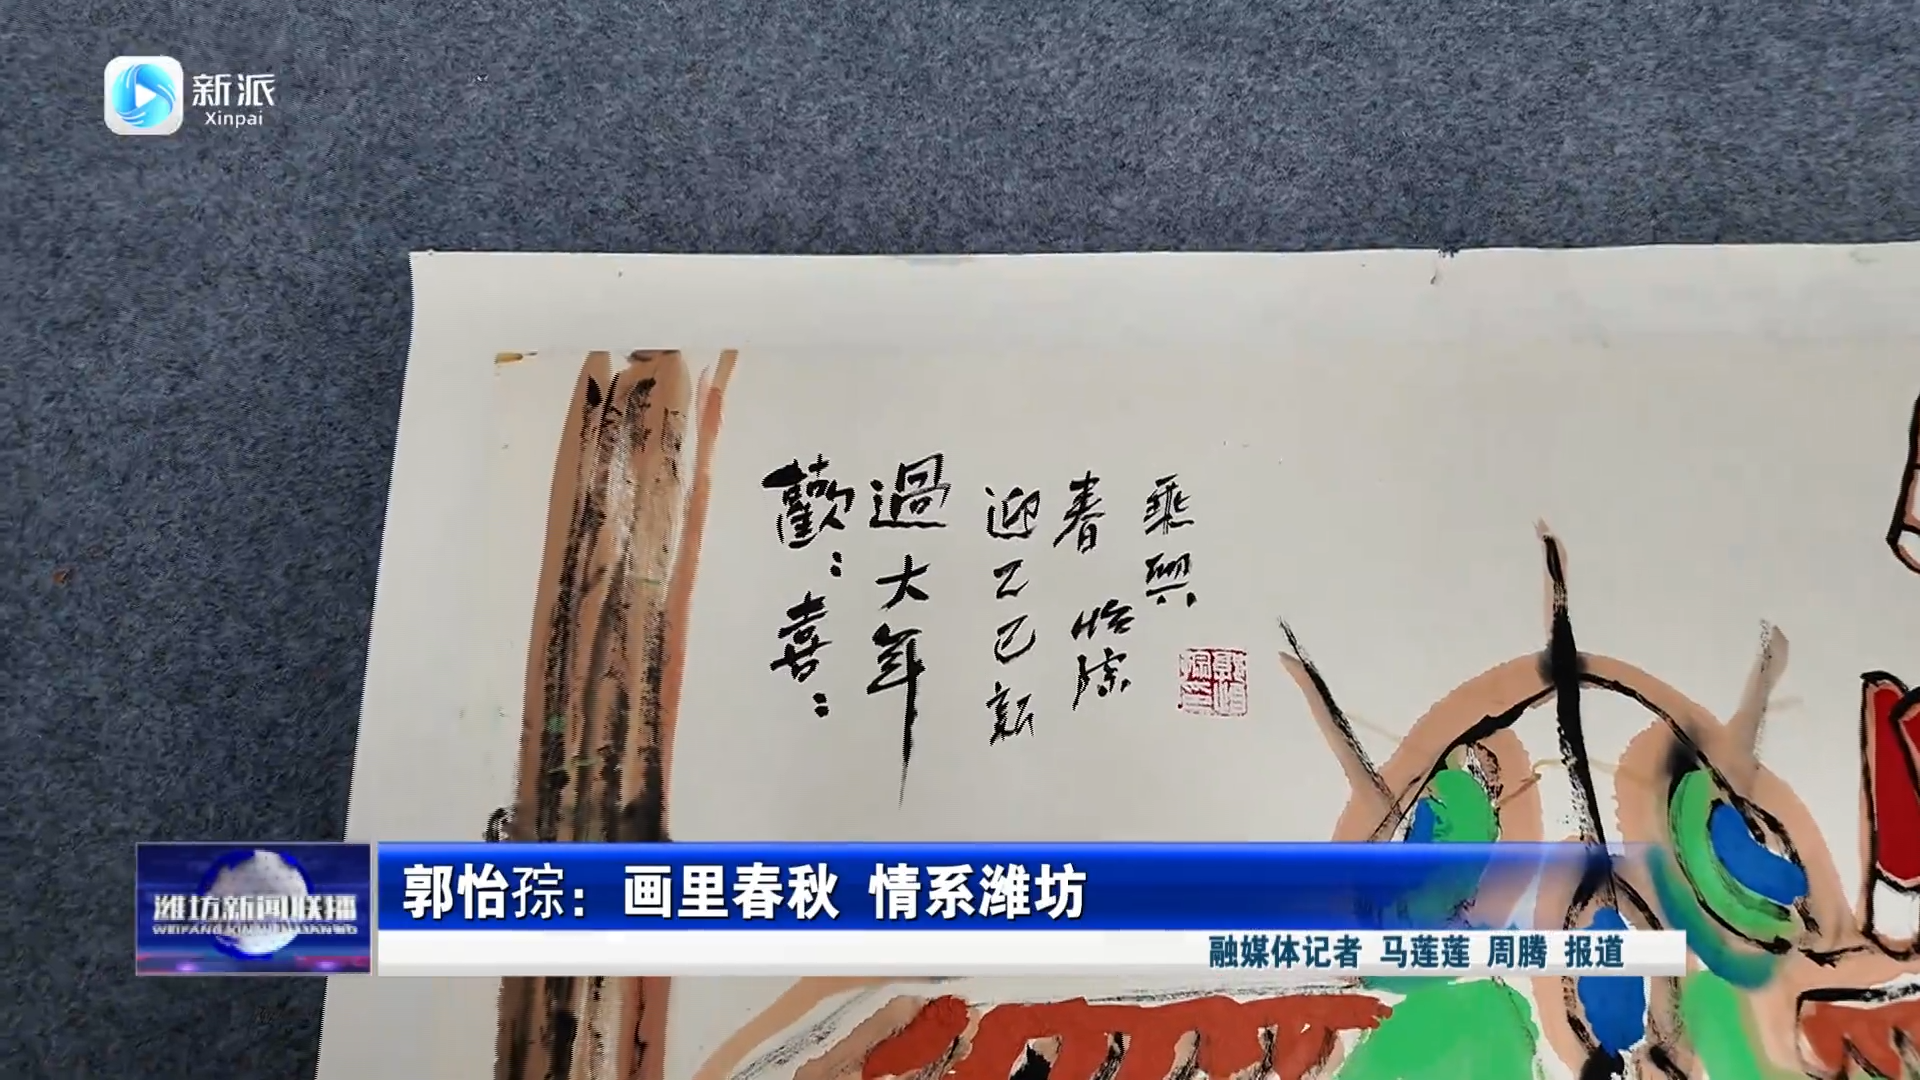 新派
Xinpai
歡：喜：
過大年
迎乙巳新
春 怡孮
乘興
郭怡孮：画里春秋 情系潍坊
潍坊新闻联播
WEIFANG XIN WEN LIAN BO
融媒体记者 马莲莲 周腾 报道